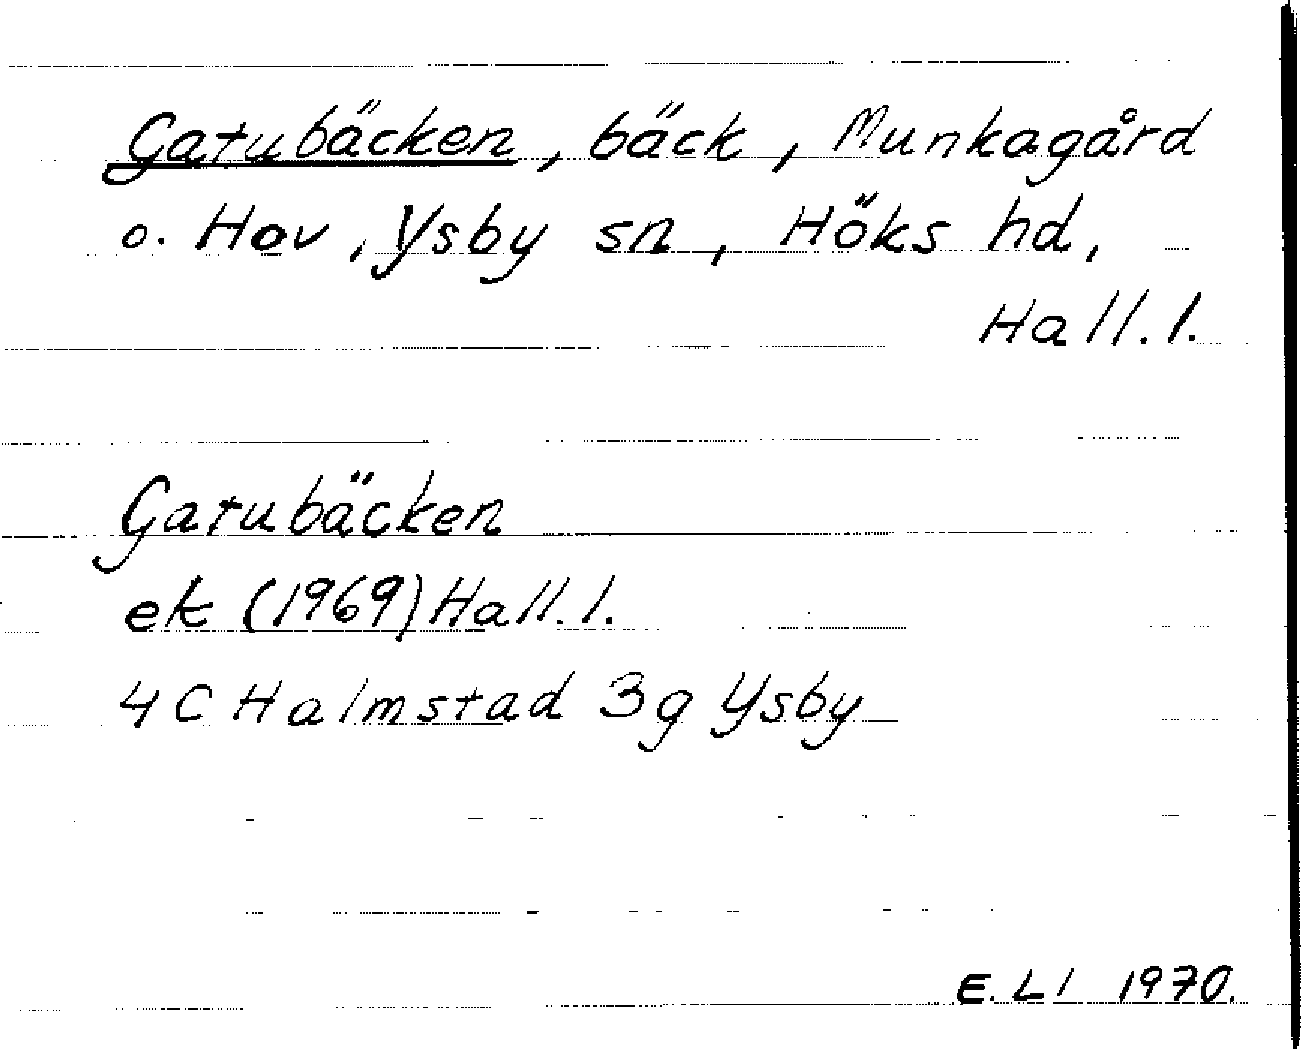 Gatubäcken, bäck, Munkagård
o. Hov, Ysby sn, Höks hd,
Hall. l.
Gatubäcken
ek (1969) Hall. l.
4 C Halmstad 3g Ysby
E. Ll 1970.